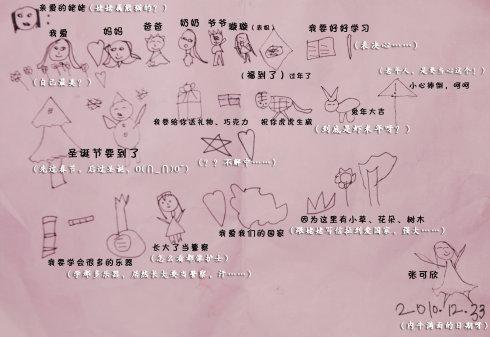 亲爱的姥姥(姥姥属熊猫的?)
我爱 妈妈 爸爸 奶奶 爷爷 璇璇(表姐) 我要好好学习
(表决心……)
(自己最美?) (福到了)过年了 (老年人,是要当心这个!)
小心摔倒,呵呵
我要给你送礼物、巧克力 祝你虎虎生威 兔年大吉
圣诞节要到了 (到底是虾米年呀?)
(先过春节,后过圣诞,O(∩_∩)O~) (??不解中……)
因为这里有小草、花朵、树木
长大了当警察 我爱我们的国家 (跟姥姥写信扯到爱国家,强大……)
我要学会很多的乐器 (怎么看都像护士)
(学那多乐器,居然长大要当警察,汗……)
张可欣
2010.12.33
(内牛满面的日期呀)